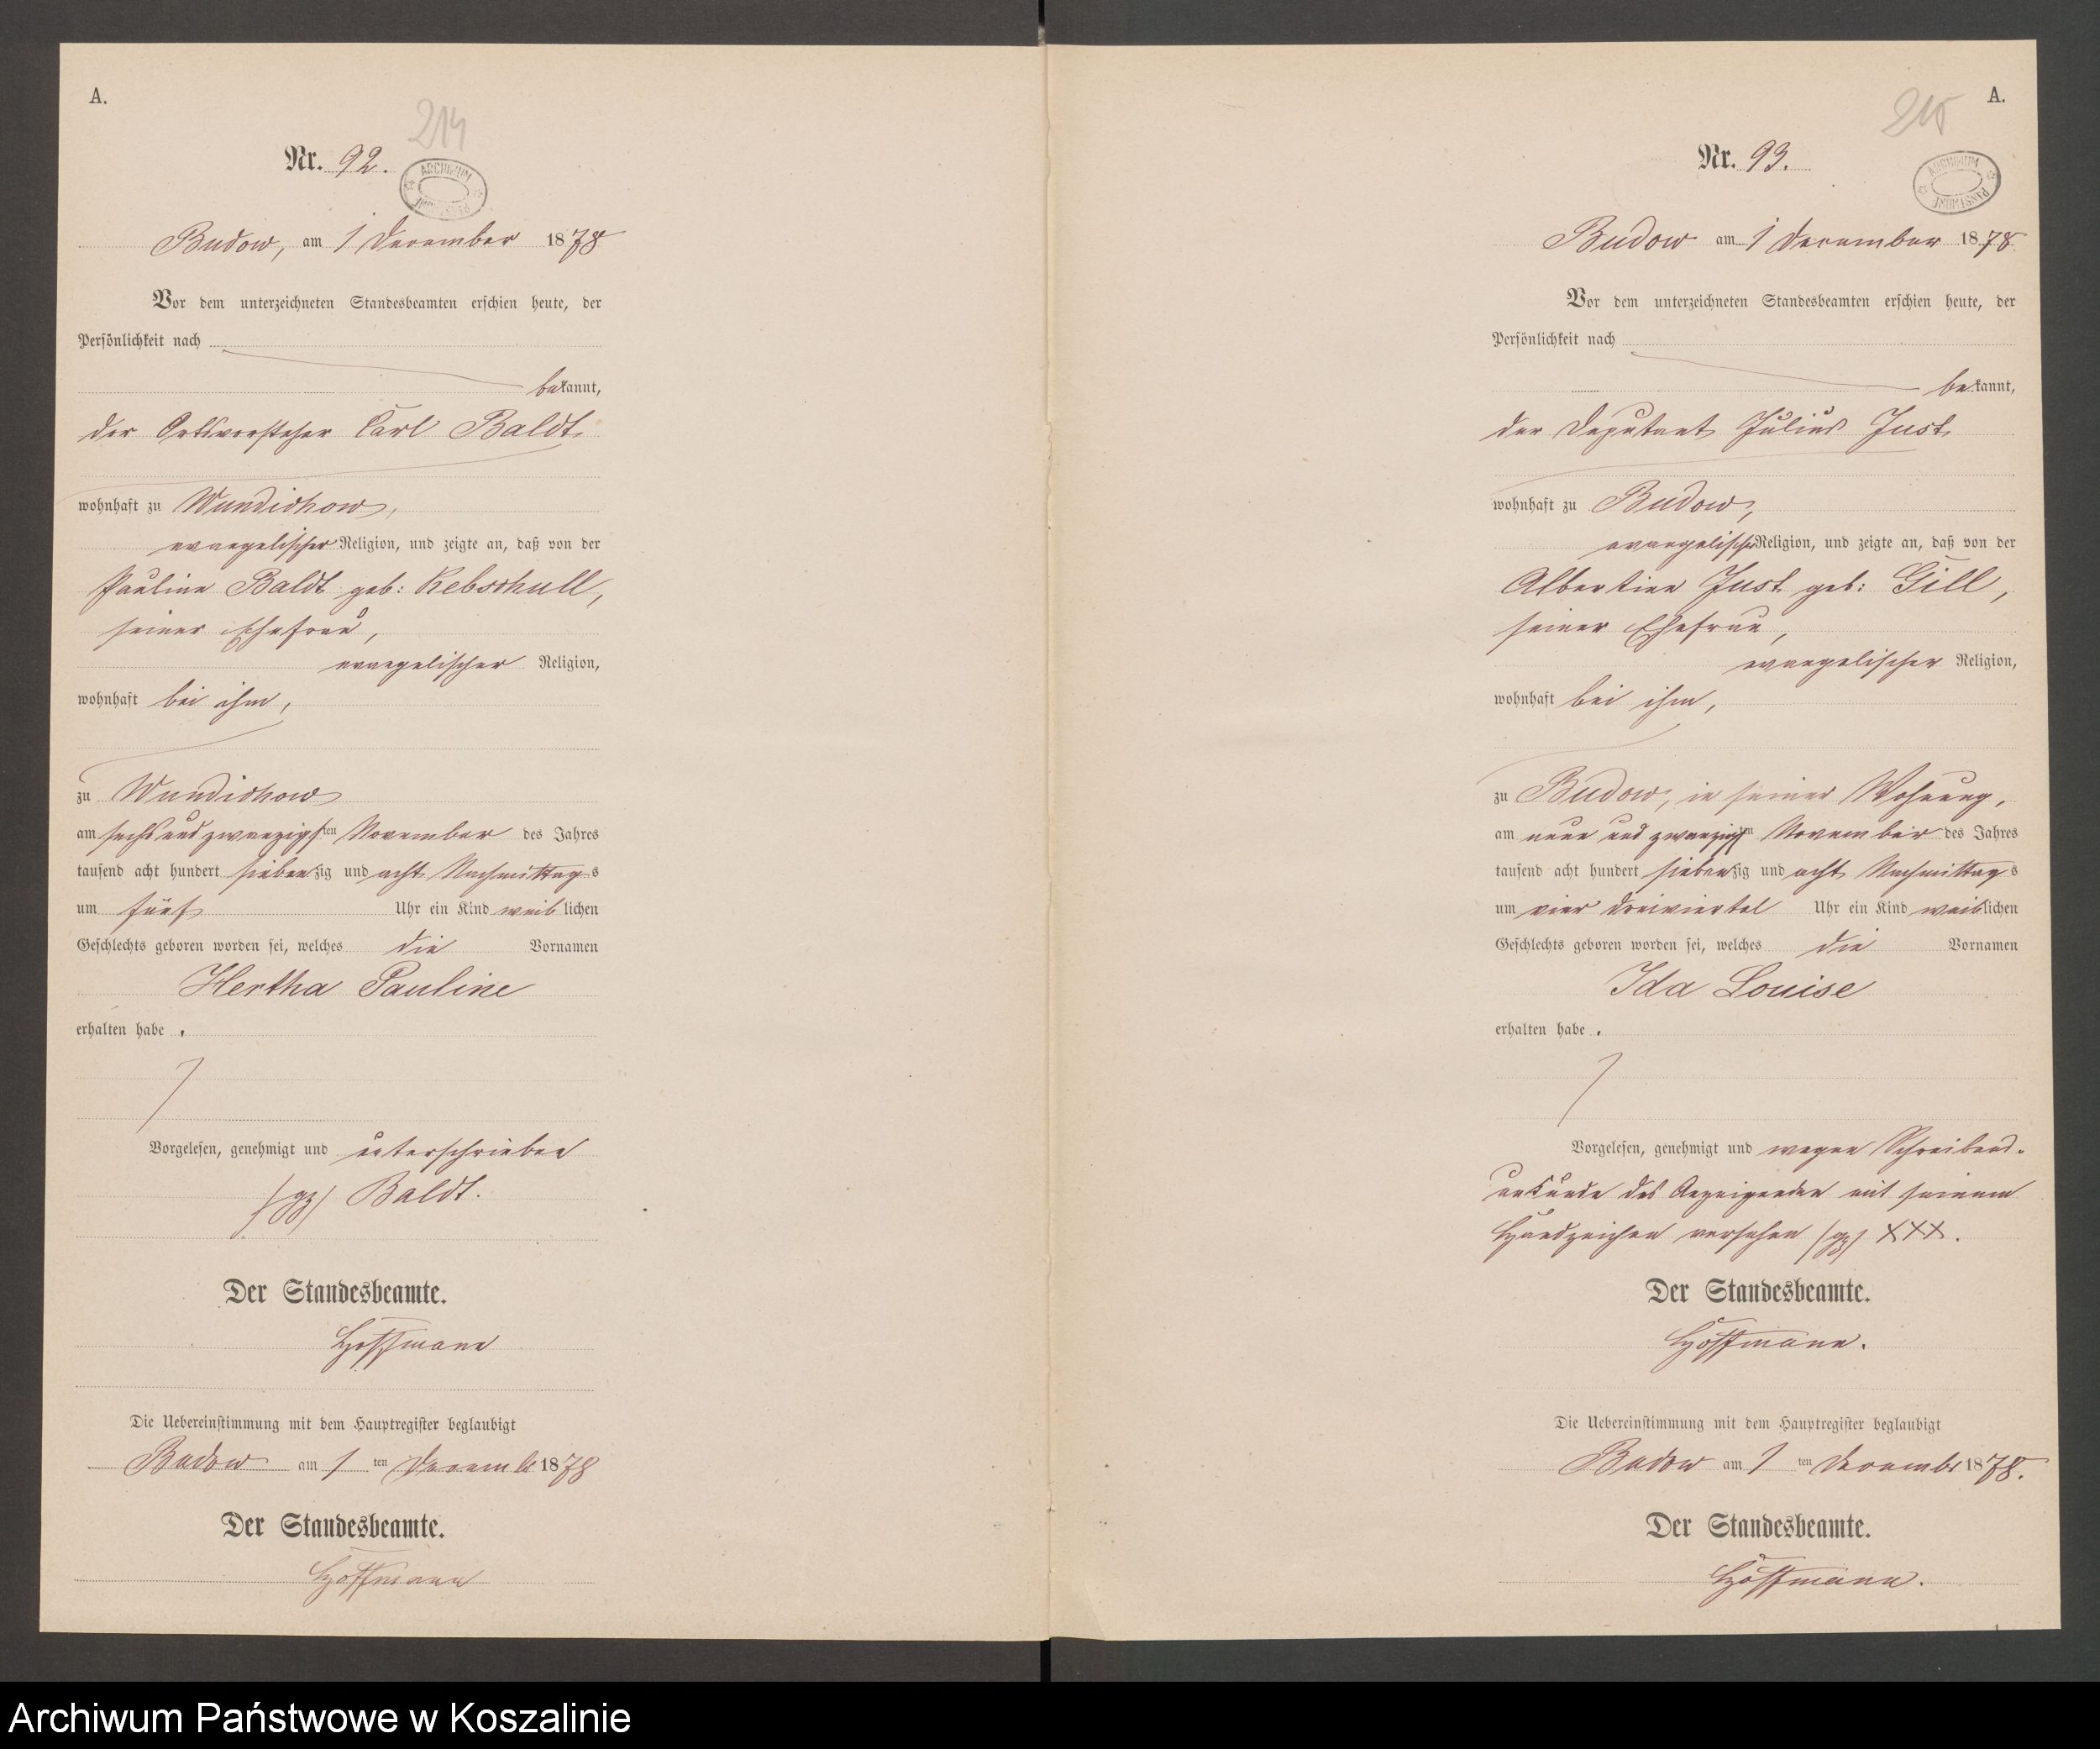 A.
214
Nr. 92.
ARCHIWUM PAŃSTWOWE
Budow, am 1 December 1878
Vor dem unterzeichneten Standesbeamten erschien heute, der
Persönlichkeit nach
bekannt,
der Ortsvorsteher Carl Baldt
wohnhaft zu Wundichow,
evangelischer Religion, und zeigte an, daß von der
Pauline Baldt geb: Kebschull,
seiner Ehefrau,
evangelischer Religion,
wohnhaft bei ihm,
zu Wundichow
am sechs und zwanzigsten November des Jahres
tausend acht hundert siebenzig und acht Nachmittags
um fünf Uhr ein Kind weiblichen
Geschlechts geboren worden sei, welches die Vornamen
Hertha Pauline
erhalten habe.
Vorgelesen, genehmigt und unterschrieben
/gz/ Baldt.
Der Standesbeamte.
Hoffmann
Die Uebereinstimmung mit dem Hauptregister beglaubigt
Budow am 1 ten Decembr 1878
Der Standesbeamte.
Hoffmann
A.
215
Nr. 93.
ARCHIWUM PAŃSTWOWE
Budow am 1 December 1878
Vor dem unterzeichneten Standesbeamten erschien heute, der
Persönlichkeit nach
bekannt,
der Deputant Julius Just
wohnhaft zu Budow,
evangelischer Religion, und zeigte an, daß von der
Albertine Just geb: Gill,
seiner Ehefrau,
evangelischer Religion,
wohnhaft bei ihm,
zu Budow, in seiner Wohnung,
am neun und zwanzigsten November des Jahres
tausend acht hundert siebenzig und acht Nachmittags
um vier dreiviertel Uhr ein Kind weiblichen
Geschlechts geboren worden sei, welches die Vornamen
Ida Louise
erhalten habe.
Vorgelesen, genehmigt und wegen Schreibens-
unkunde des Anzeigenden mit seinem
Handzeichen versehen /gz/ XXX.
Der Standesbeamte.
Hoffmann.
Die Uebereinstimmung mit dem Hauptregister beglaubigt
Budow am 1 ten Decembr 1878.
Der Standesbeamte.
Hoffmann.
Archiwum Państwowe w Koszalinie